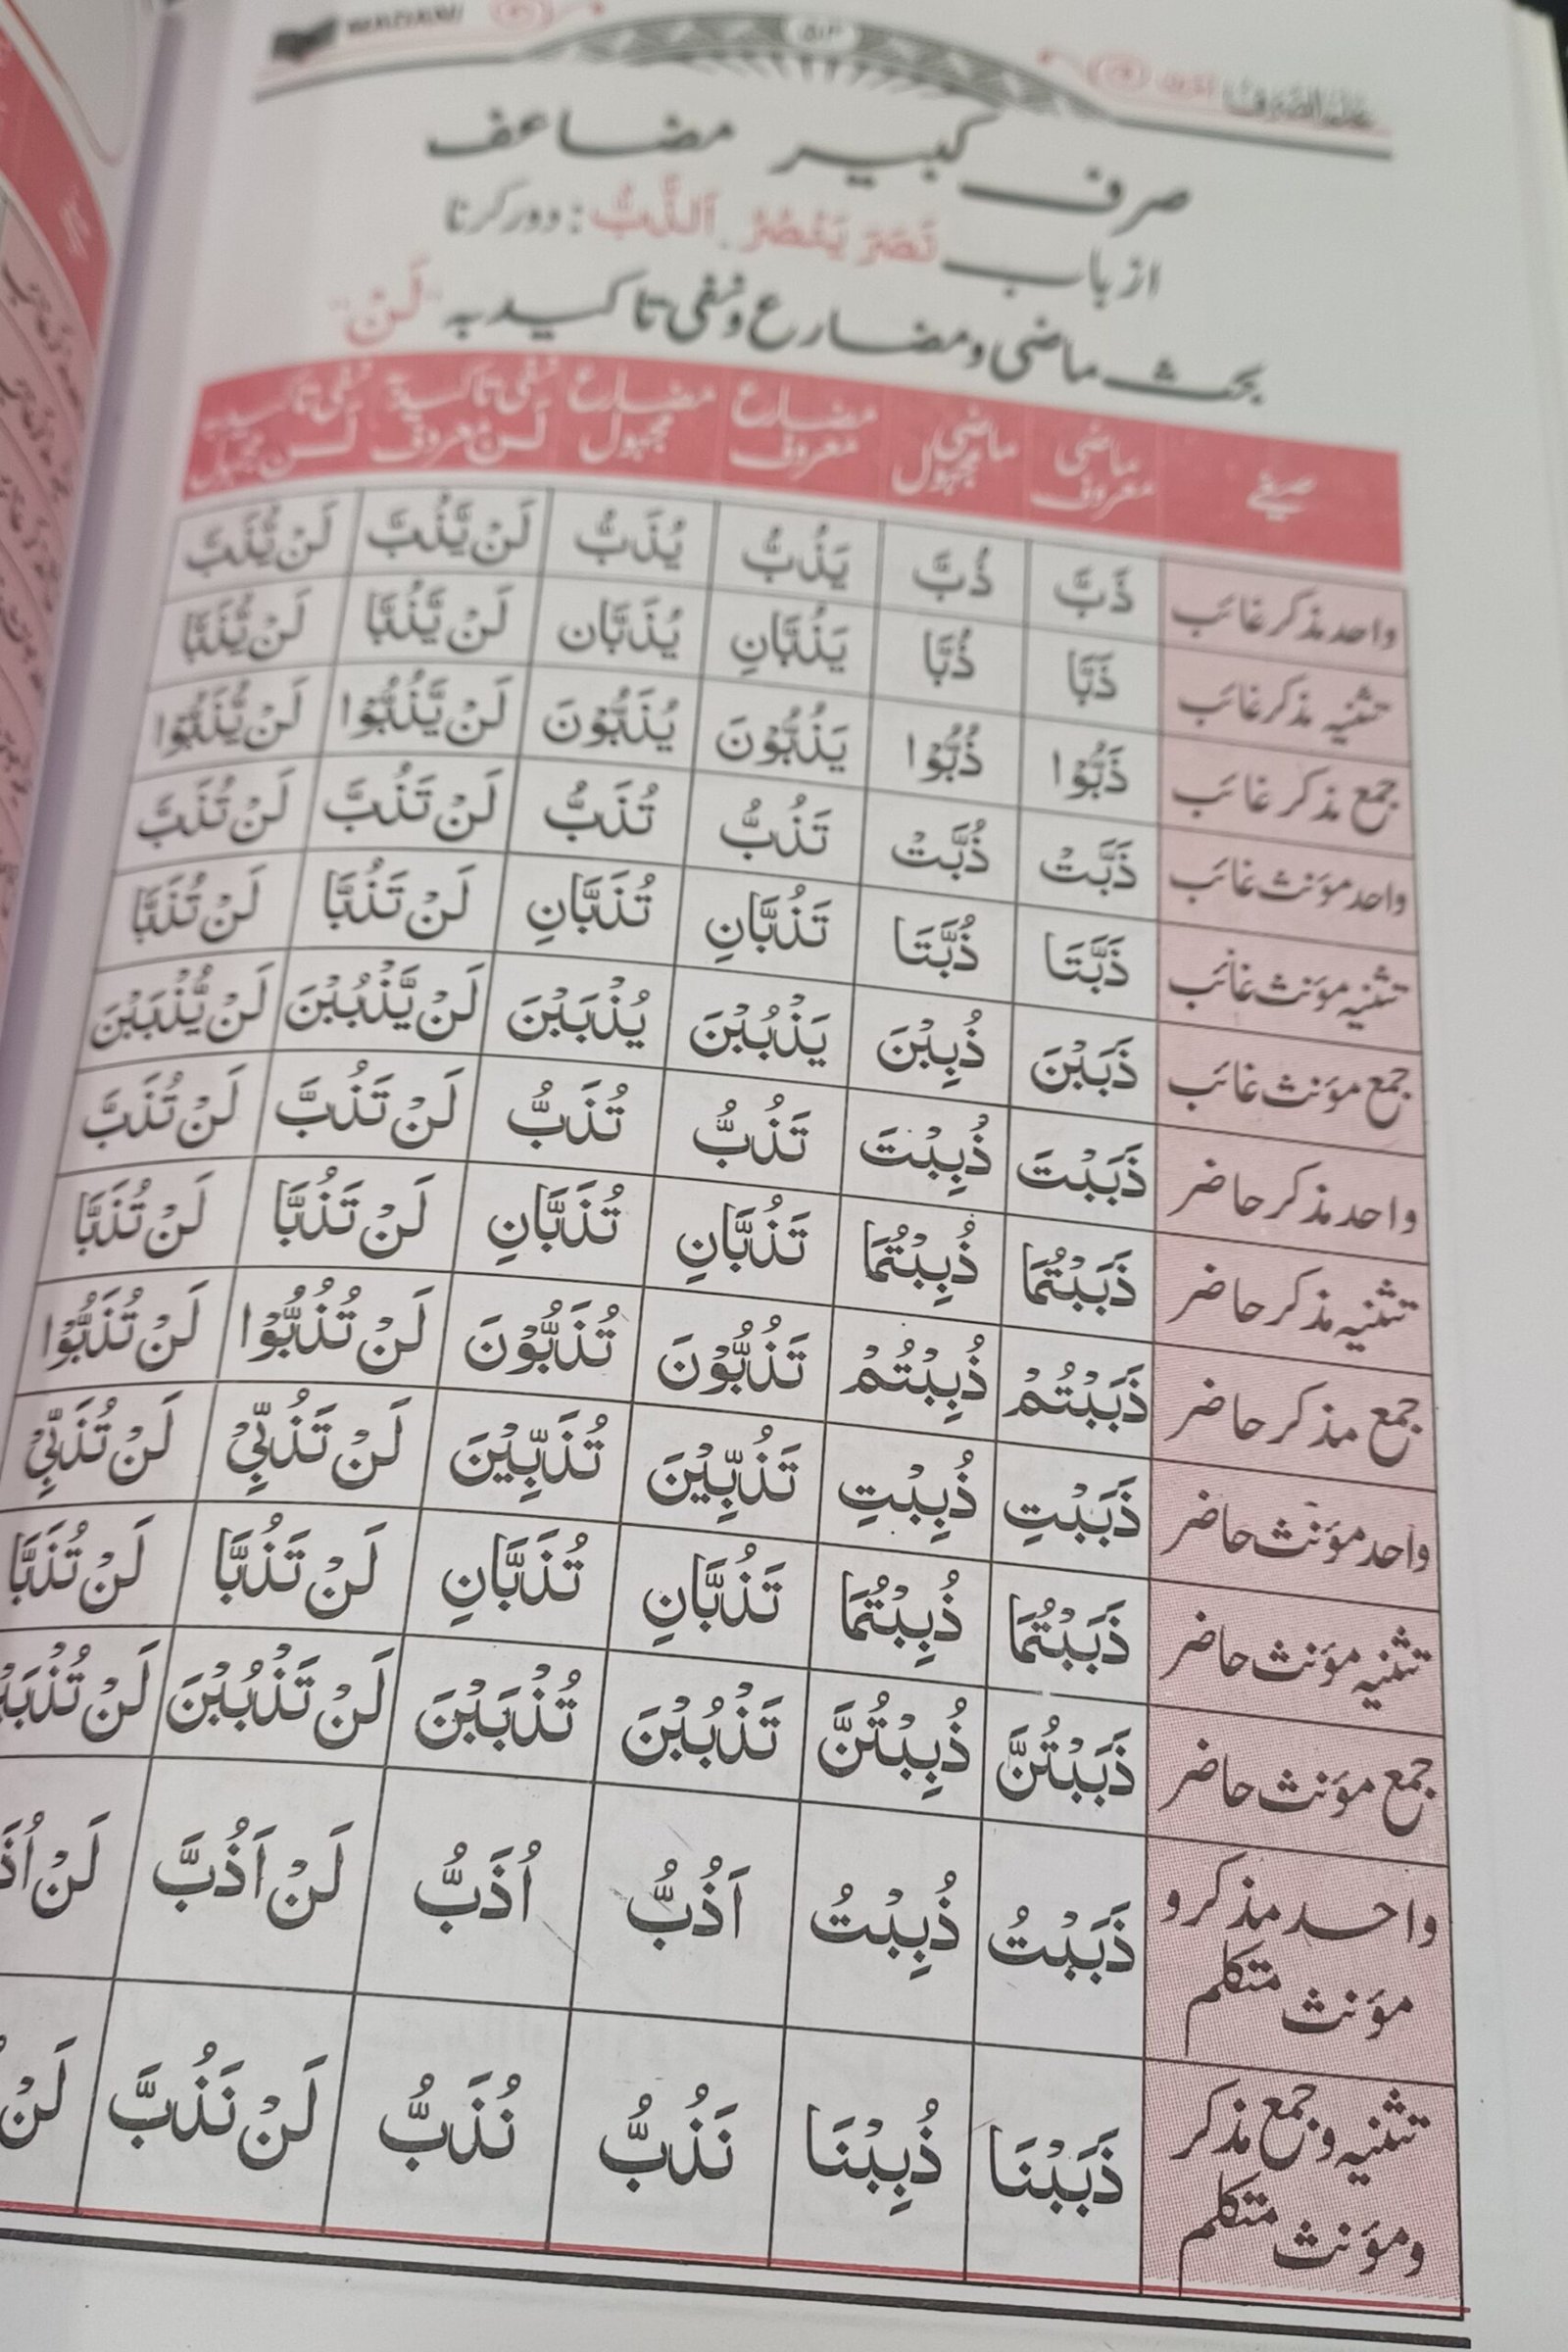 MADANI ۵۱۳ علم الصرف
صرف کبیر مضاعف
از باب نَصَرَ یَنْصُرُ. اَلذَّبُّ: دور کرنا
بحث ماضی و مضارع و نفی تاکید بہ "لَنْ"
صیغے ماضی معروف ماضی مجہول مضارع معروف مضارع مجہول نفی تاکید بہ لن معروف نفی تاکید بہ لن مجہول
واحد مذکر غائب ذَبَّ ذُبَّ یَذُبُّ یُذَبُّ لَنْ یَّذُبَّ لَنْ یُّذَبَّ
تثنیہ مذکر غائب ذَبَّا ذُبَّا یَذُبَّانِ یُذَبَّان لَنْ یَّذُبَّا لَنْ یُّذَبَّا
جمع مذکر غائب ذَبُّوْا ذُبُّوْا یَذُبُّوْنَ یُذَبُّوْنَ لَنْ یَّذُبُّوْا لَنْ یُّذَبُّوْا
واحد مؤنث غائب ذَبَّتْ ذُبَّتْ تَذُبُّ تُذَبُّ لَنْ تَذُبَّ لَنْ تُذَبَّ
تثنیہ مؤنث غائب ذَبَّتَا ذُبَّتَا تَذُبَّانِ تُذَبَّانِ لَنْ تَذُبَّا لَنْ تُذَبَّا
جمع مؤنث غائب ذَبَبْنَ ذُبِبْنَ یَذْبُبْنَ یُذْبَبْنَ لَنْ یَّذْبُبْنَ لَنْ یُّذْبَبْنَ
واحد مذکر حاضر ذَبَبْتَ ذُبِبْتَ تَذُبُّ تُذَبُّ لَنْ تَذُبَّ لَنْ تُذَبَّ
تثنیہ مذکر حاضر ذَبَبْتُمَا ذُبِبْتُمَا تَذُبَّانِ تُذَبَّانِ لَنْ تَذُبَّا لَنْ تُذَبَّا
جمع مذکر حاضر ذَبَبْتُمْ ذُبِبْتُمْ تَذُبُّوْنَ تُذَبُّوْنَ لَنْ تُذُبُّوْا لَنْ تُذَبُّوْا
واحد مؤنث حاضر ذَبَبْتِ ذُبِبْتِ تَذُبِّیْنَ تُذَبِّیْنَ لَنْ تَذُبِّیْ لَنْ تُذَبِّیْ
تثنیہ مؤنث حاضر ذَبَبْتُمَا ذُبِبْتُمَا تَذُبَّانِ تُذَبَّانِ لَنْ تَذُبَّا لَنْ تُذَبَّا
جمع مؤنث حاضر ذَبَبْتُنَّ ذُبِبْتُنَّ تَذْبُبْنَ تُذْبَبْنَ لَنْ تَذْبُبْنَ لَنْ
واحد مذکر و مؤنث متکلم ذَبَبْتُ ذُبِبْتُ اَذُبُّ اُذَبُّ لَنْ اَذُبَّ لَنْ
تثنیہ و جمع مذکر و مؤنث متکلم ذَبَبْنَا ذُبِبْنَا نَذُبُّ نُذَبُّ لَنْ نَذُبَّ لَنْ